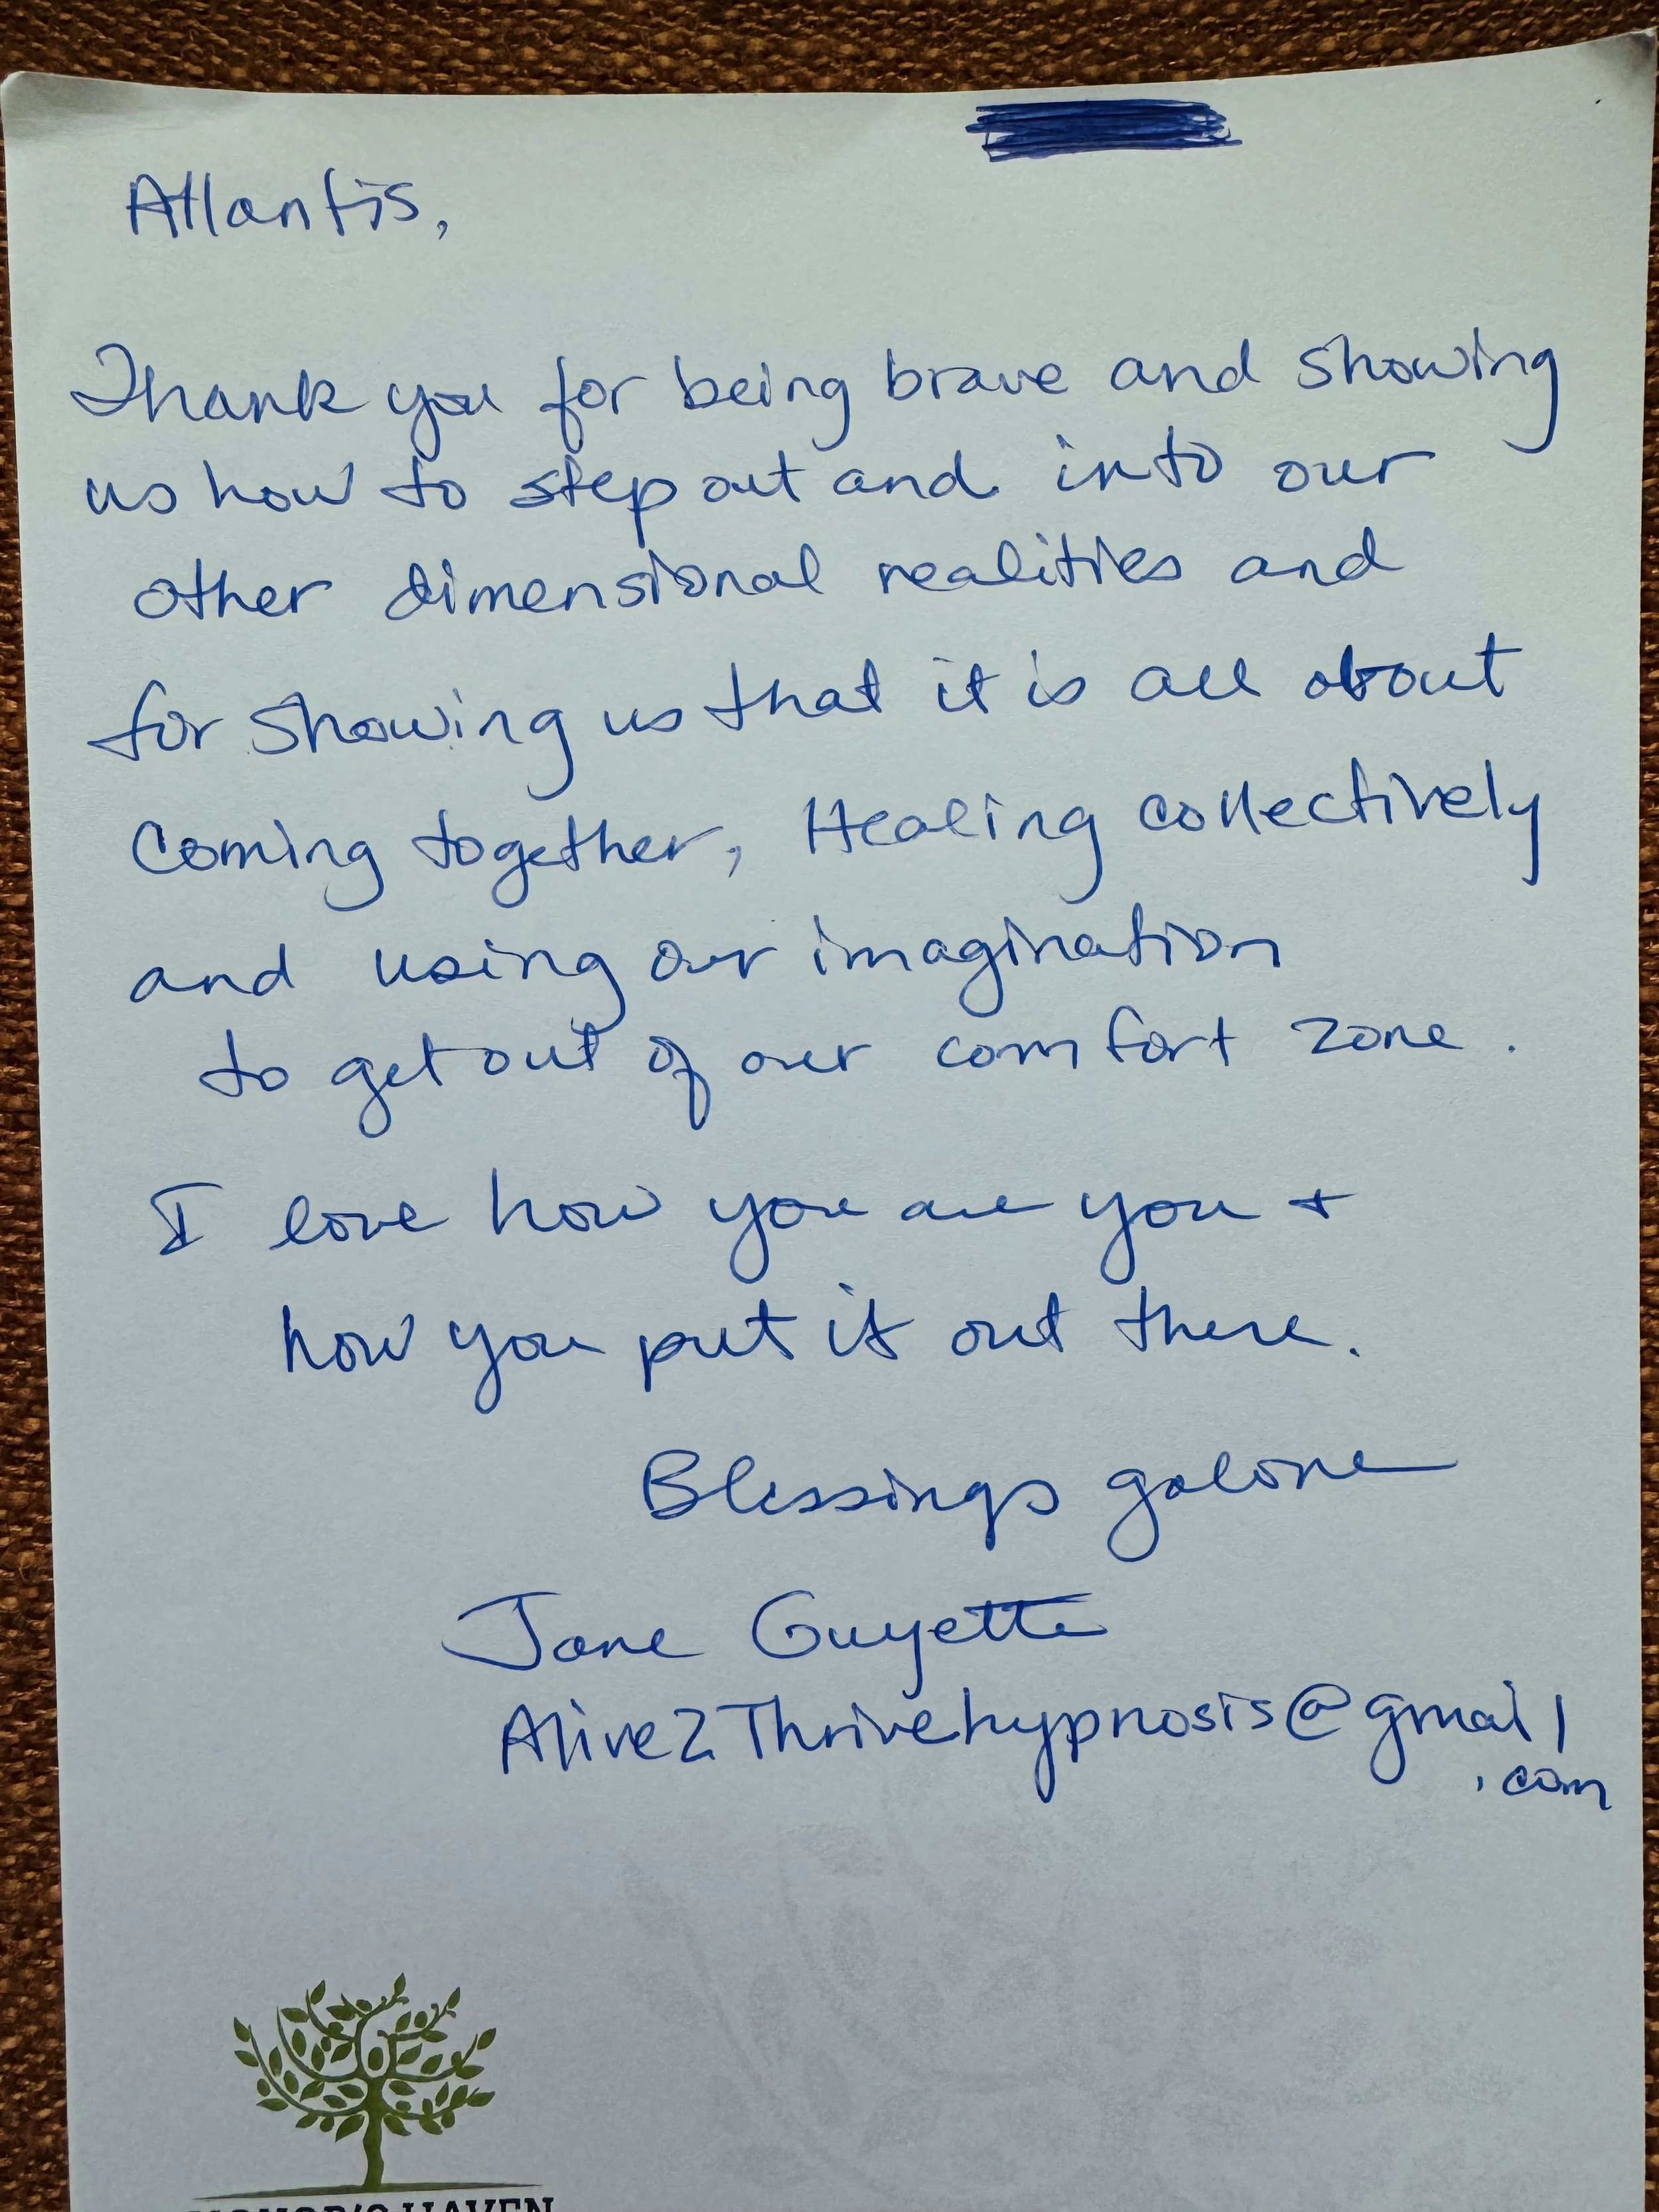 Atlantis,
Thank you for being brave and showing
us how to step out and into our
other dimensional realities and
for showing us that it is all about
Coming together, Healing collectively
and using our imagination
to get out of our comfort zone.
I love how you are you +
how you put it out there.
Blessings galore
Jane Guyette
Alive2Thrivehypnosis@gmail
.com
HONOR'S HAVEN